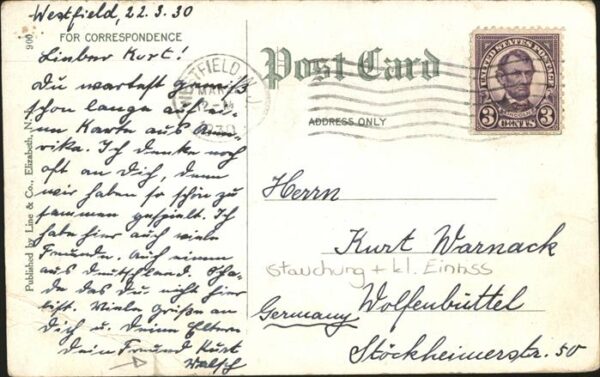 Westfield, 22.3.30
900
FOR CORRESPONDENCE
Lieber Kurt!
Du wartest gewiß
schon lange auf ei-
ne Karte aus Ame-
rika. Ich denke noch
oft an Dich, denn
wir haben so schön zu
sammen gespielt. Ich
habe hier auch viele
Freunde. Auch einen
aus Deutschland. Scha-
de das du nicht hier
bist. Viele Grüße an
Dich u. Deine Eltern
Dein Freund Kurt
Walsch
Published by Line & Co., Elizabeth, N.J.
Post Card
ADDRESS ONLY
WESTFIELD N.J.
MAR
12-M
1930
UNITED STATES POSTAGE
LINCOLN
3 CENTS 3
Herrn
Kurt Warnack
Stauchung + kl. Einriss
Wolfenbüttel
Germany
Stöckheimerstr. 50